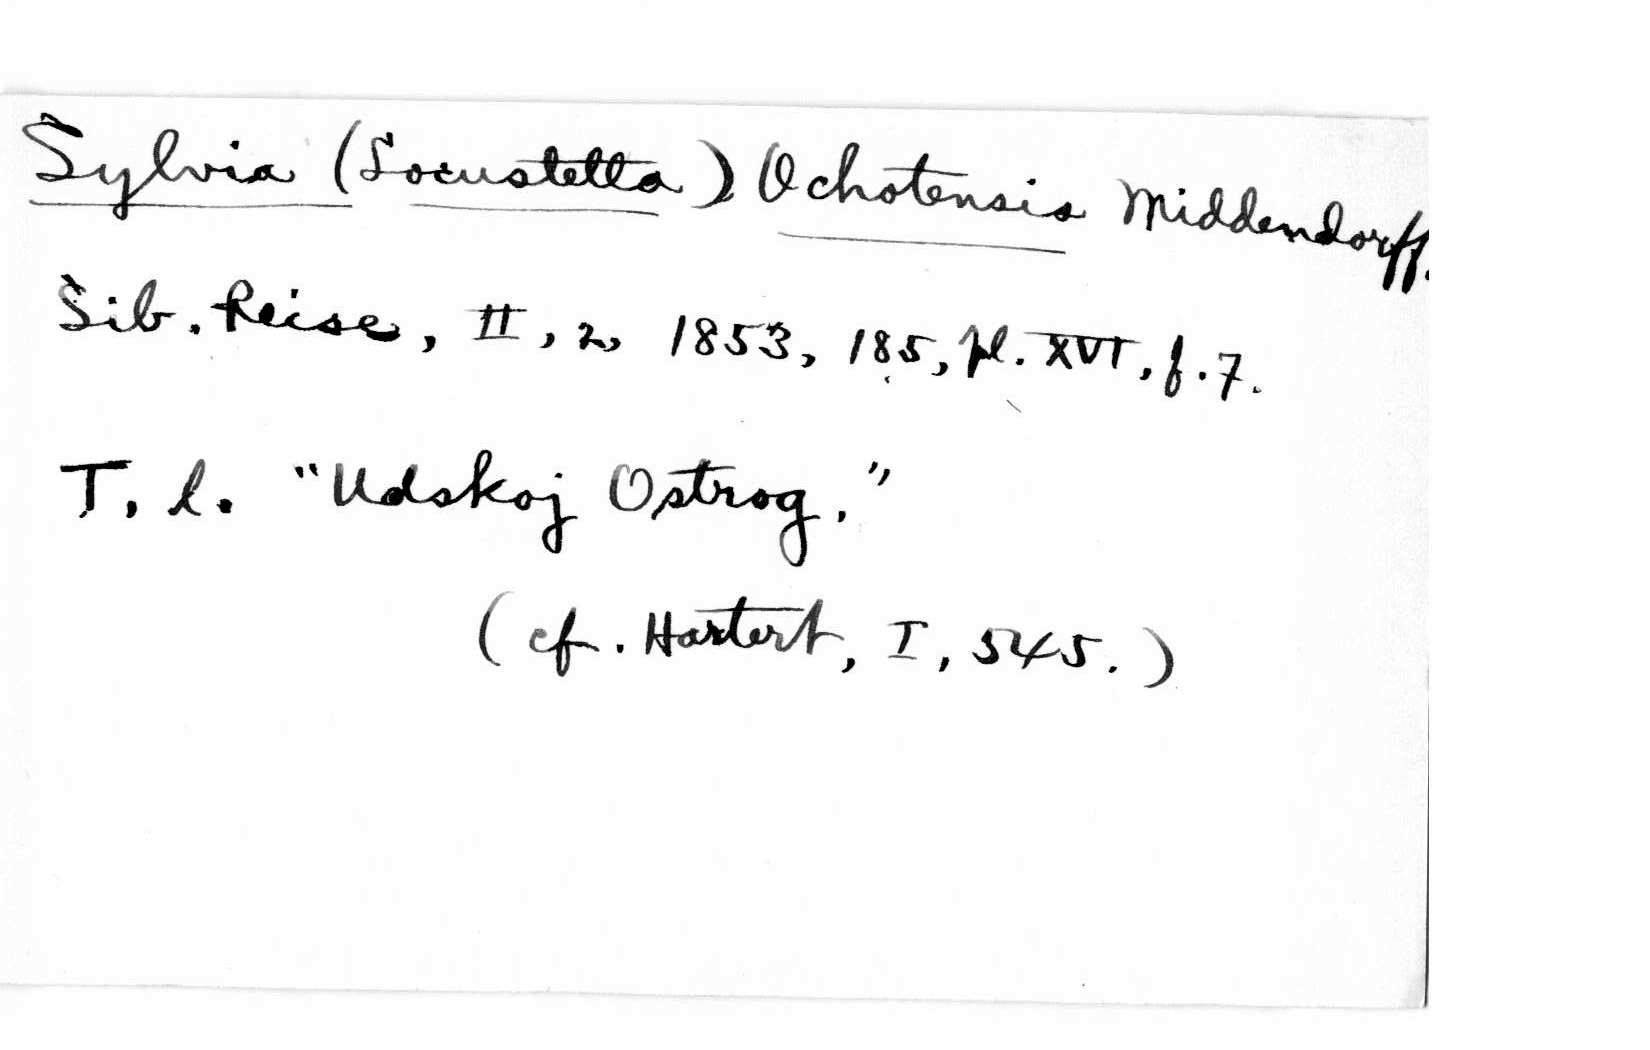 Sylvia (Locustella) Ochotensis Middendorff.
Sib. Reise, II, 2, 1853, 185, pl. XVI, f. 7.
T. l. "Udskoj Ostrog."
(cf. Hartert, I, 545.)